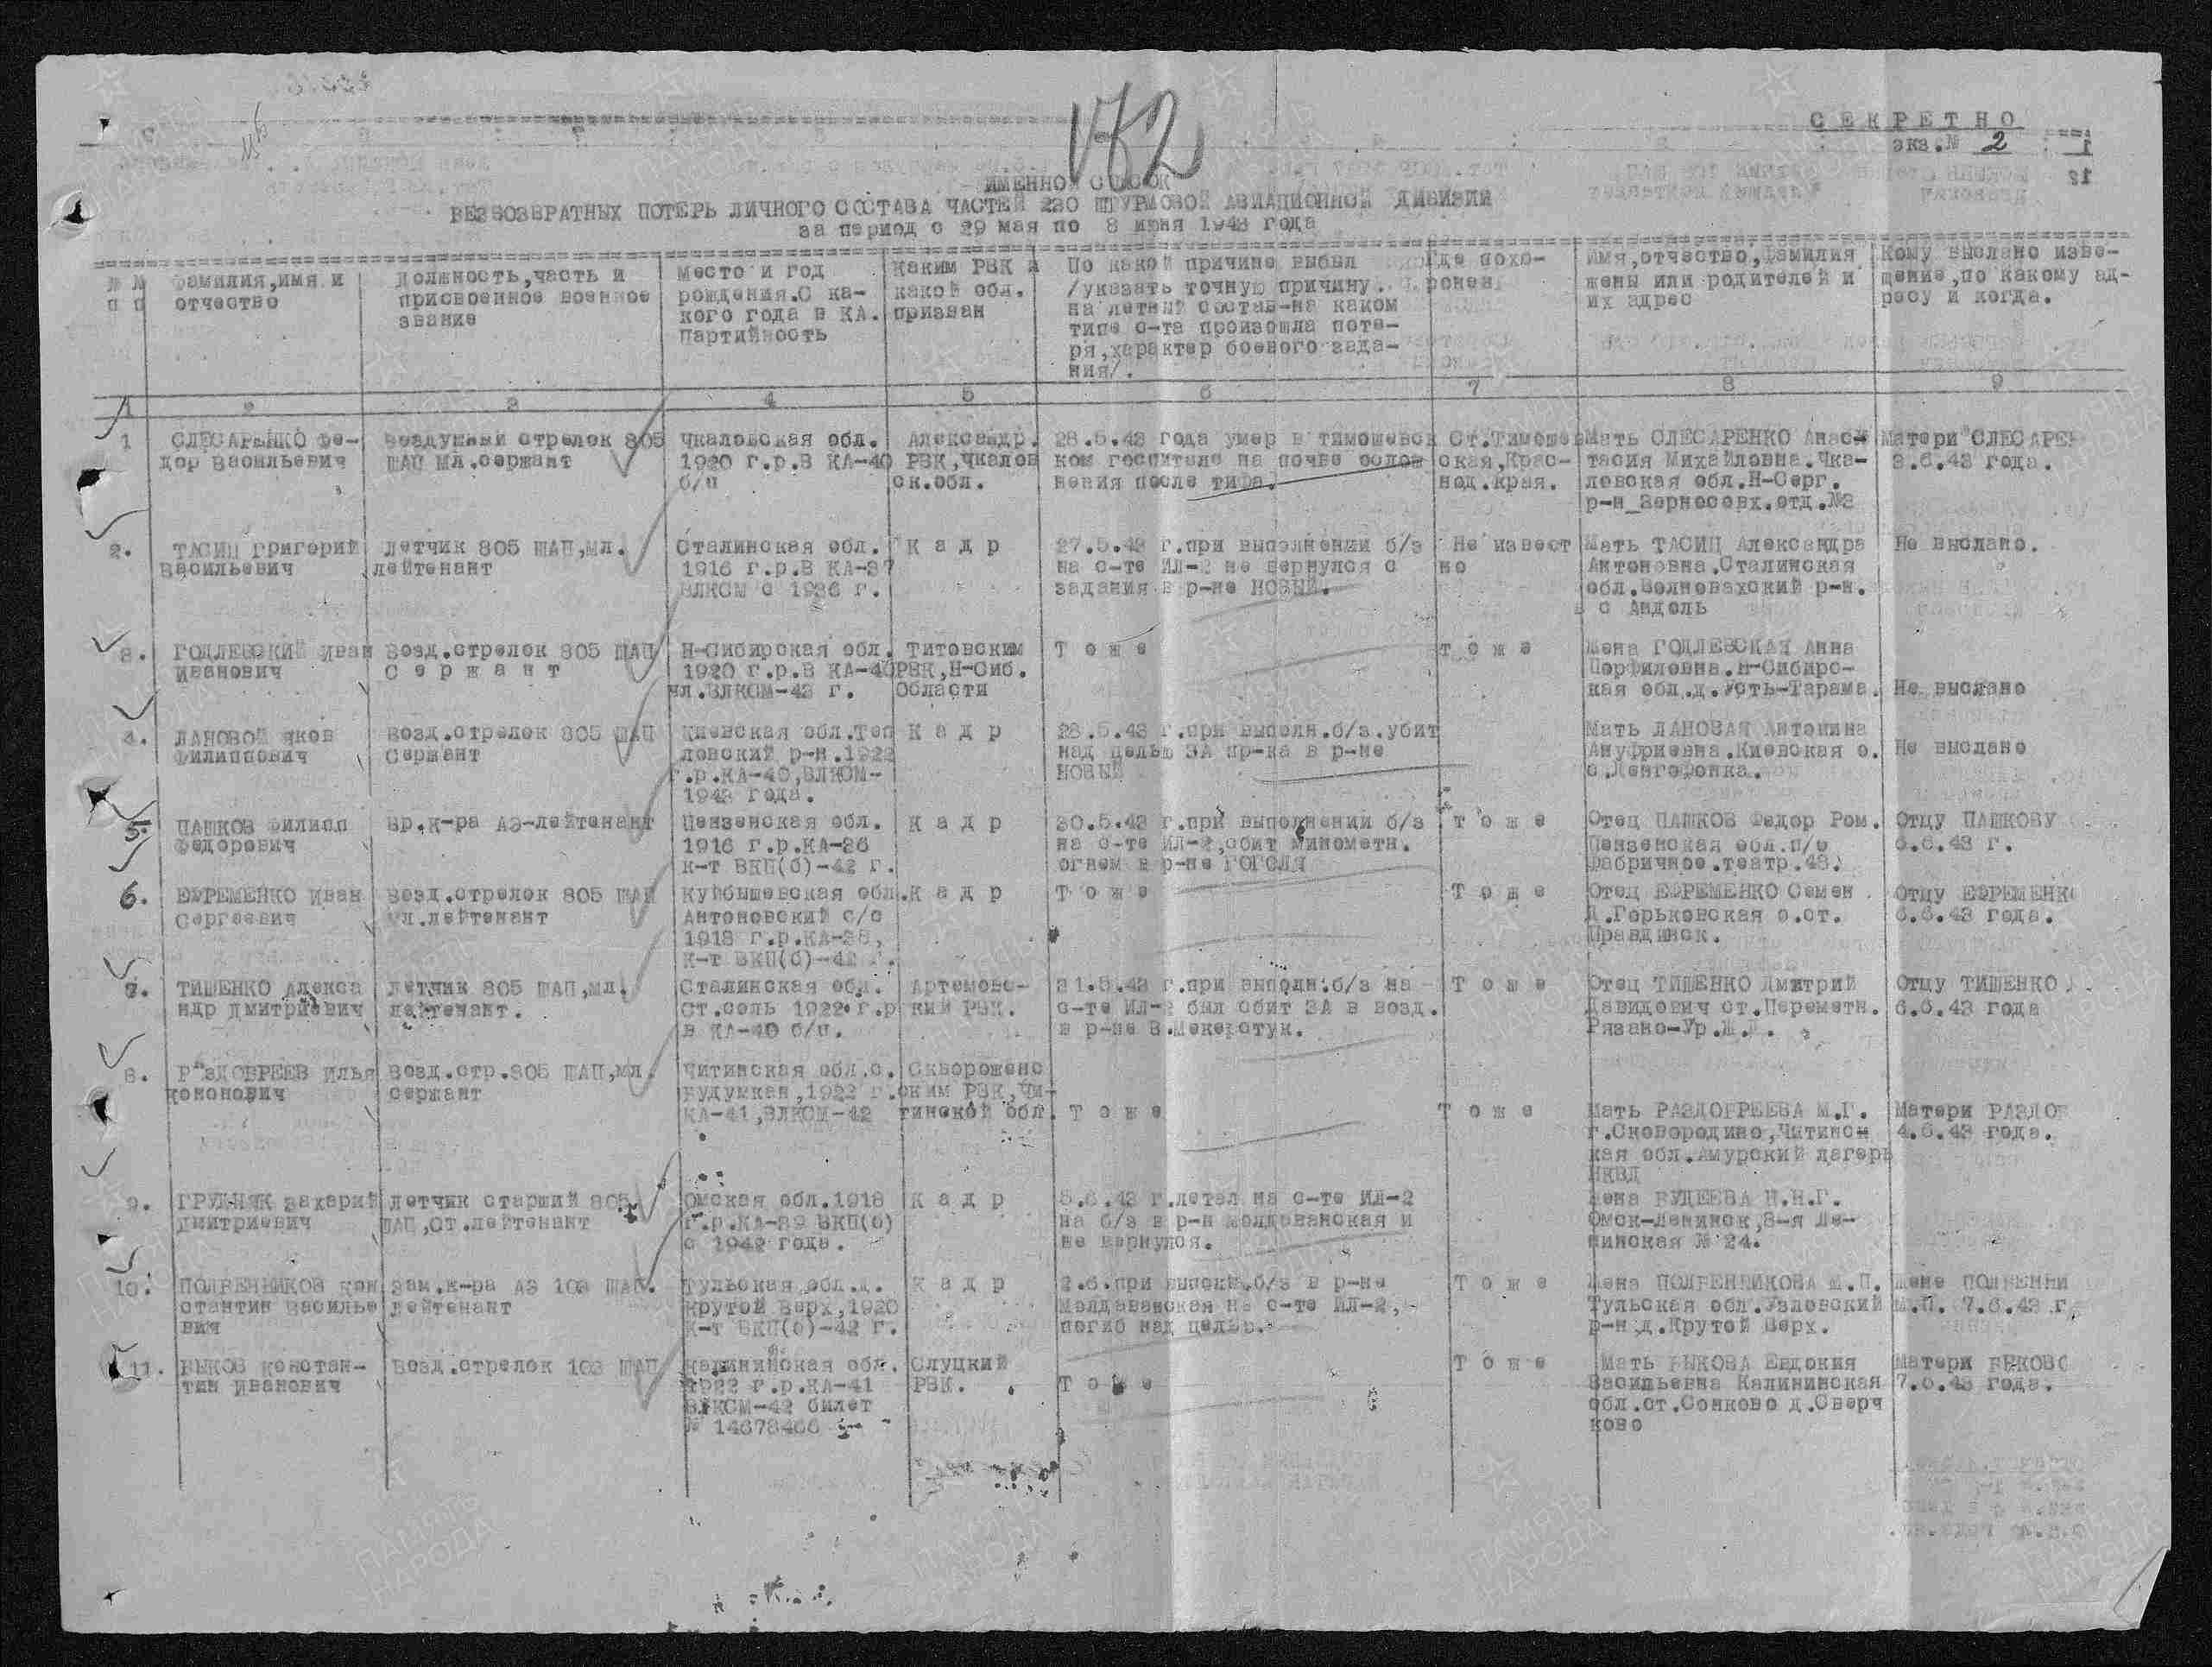 172
СЕКРЕТНО
экз.№ 2
ИМЕННОЙ СПИСОК
БЕЗВОЗВРАТНЫХ ПОТЕРЬ ЛИЧНОГО СОСТАВА ЧАСТЕЙ 230 ШТУРМОВОЙ АВИАЦИОННОЙ ДИВИЗИИ
за период с 29 мая по 8 июня 1943 года
№ № п п
Фамилия,имя и
отчество
Должность,часть и
присвоенное военное
звание
Место и год
рождения.С ка-
кого года в КА.
Партийность
Каким РВК и
какой обл.
призван
По какой причине выбыл
/указать точную причину.
на летный состав-на каком
типе с-та произошла поте-
ря,характер боевого зада-
ния/.
Где похо-
ронен
Имя,отчество,фамилия
жены или родителей и
их адрес
Кому выслано изве-
щение,по какому ад-
ресу и когда.
1 2 3 4 5 6 7 8 9
1
СЛЕСАРЕНКО Фе-
дор Васильевич
Воздушный стрелок 805
ШАП Мл.сержант
Чкаловская обл.
1920 г.р.В КА-40
б/п
Александр.
РВК,Чкалов
ск.обл.
28.5.43 года умер в Тимошевск
ком госпитале на почве ослож
нения после тифа.
Ст.Тимошев
ская,Крас-
нод.края.
Мать СЛЕСАРЕНКО Анас-
тасия Михайловна.Чка-
ловская обл.Н-Серг.
р-н Зерносовх.отд.№2
Матери СЛЕСАРЕН
3.6.43 года.
2.
ТАСИЦ Григорий
Васильевич
Летчик 805 ШАП,мл.
лейтенант
Сталинская обл.
1916 г.р.В КА-37
ВЛКСМ с 1936 г.
К а д р
27.5.43 г.при выполнении б/з
на с-те ИЛ-2 не вернулся с
задания в р-не НОВЫЙ.
Не извест
но
Мать ТАСИЦ Александра
Антоновна.Сталинская
обл.Волновахский р-н.
с Андоль
Не выслано.
3.
ГОДЛЕВСКИЙ Иван
Иванович
Возд.стрелок 805 ШАП
С е р ж а н т
Н-Сибирская обл.
1920 г.р.В КА-40
чл.ВЛКСМ-43 г.
Титовским
РВК,Н-Сиб.
Области
Т о ж е
т о ж е
Жена ГОДЛЕВСКАЯ Анна
Порфиловна.Н-Сибирс-
кая обл.д.Усть-Тарама.
Не выслано
4.
ЛАНОВОЙ Яков
Филиппович
Возд.стрелок 805 ШАП
Сержант
Киевская обл.Теп
ловский р-н.1922
г.р.КА-40,ВЛКСМ-
1943 года.
К а д р
28.5.43 г.при выполн.б/з.убит
над целью ЗА пр-ка в р-не
НОВЫЙ
Мать ЛАНОВАЯ Антонина
Ануфриевна.Киевская о.
с.Лонгофонка.
Не выслано
5.
ПАШКОВ Филипп
Федорович
Вр.к-ра АЭ-лейтенант
Пензенская обл.
1916 г.р.КА-36
к-т ВКП(б)-42 г.
К а д р
30.5.43 г.при выполнении б/з
на с-те ИЛ-2,сбит минометн.
огнем в р-не ГОГОЛЯ
Т о ж е
Отец ПАШКОВ Федор Ром.
Пензенская обл.п/о
фабричное.театр.43.
Отцу ПАШКОВУ
6.6.43 г.
6.
ЕФРЕМЕНКО Иван
Сергеевич
Возд.стрелок 805 ШАП
мл.лейтенант
Куйбышевская обл.
Антоновский с/с
1918 г.р.КА-38,
к-т ВКП(б)-42 г.
К а д р
Т о ж е
Т о ж е
Отец ЕФРЕМЕНКО Семен
Д.Горьковская о.ст.
Правдинск.
Отцу ЕФРЕМЕНК
6.6.43 года.
7.
ТИШЕНКО Алекса
ндр Дмитриевич
Летчик 805 ШАП,мл.
лейтенант.
Сталинская обл.
Ст.соль 1922 г.р
в КА-40 б/п.
Артемовс-
кий РВК.
31.5.43 г.при выполн.б/з на
с-те ИЛ-2 был сбит ЗА в возд.
в р-не В.Мекеротук.
Т о ж е
Отец ТИШЕНКО Дмитрий
Давидович ст.Переметн.
Рязано-Ур.Ж.Д.
Отцу ТИШЕНКО
6.6.43 года
8.
РАЗДОБРЕЕВ Илья
Кононович
Возд.стр.805 ШАП,мл.
сержант
Читинская обл.с.
Будумкан,1922 г.
КА-41,ВЛКСМ-42
Скворожено
ским РВК,Чи-
тинской обл.
Т о ж е
Т о ж е
Мать РАЗДОБРЕЕВА М.Г.
г.Сковородино,Читинс-
кая обл.Амурский лагерь
НКВД
Матери РАЗДОБ
4.6.43 года.
9.
ГРУДНЯК Захарий
Дмитриевич
Летчик старший 805
ШАП,Ст.лейтенант
Омская обл.1918
г.р.КА-39 ВКП(б)
с 1942 года.
К а д р
5.6.43 г.летал на с-те ИЛ-2
на б/з в р-н Молдованская и
не вернулся.
Жена РУДЕЕВА Н.Н.Г.
Омск-Ленинск,8-я Ле-
нинская № 24.
10.
ПОЛВЕННИКОВ Кон
стантин Василье
вич
Зам.к-ра АЭ 103 ШАП.
лейтенант
Тульская обл.д.
Крутой Верх,1920
К-т ВКП(б)-42 г.
К а д р
2.6.при выполн.б/з в р-не
Молдаванская на с-те ИЛ-2,
погиб над целью.
Т о ж е
Жена ПОЛВЕННИКОВА М.П.
Тульская обл.Узловский
р-н д.Крутой Верх.
Жене ПОЛВЕННИ
М.П. 7.6.43 г.
11.
БЫКОВ Констан-
тин Иванович
Возд.стрелок 103 ШАП
Калининская обл.
1922 г.р.КА-41
ВЛКСМ-42 билет
№ 14678466
Слуцкий
РВК.
Т о ж е
Т о ж е
Мать БЫКОВА Евдокия
Васильевна Калининская
обл.ст.Сонково д.Сверч
ково
Матери БЫКОВО
7.6.43 года.
ПАМЯТЬ
НАРОДА